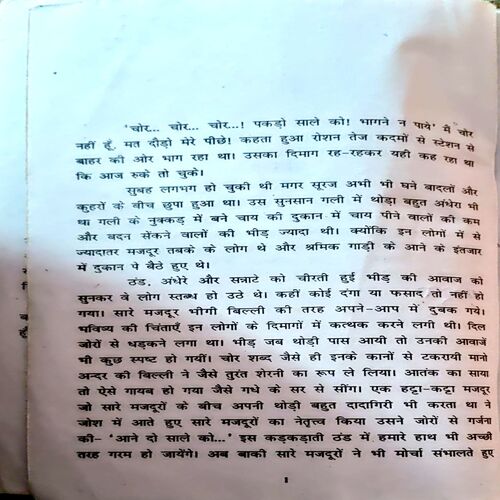 'चोर... चोर... चोर...! पकड़ो साले को! भागने न पाये' मैं चोर
नहीं हूँ, मत दौड़ो मेरे पीछे! कहता हुआ रोशन तेज कदमों से स्टेशन से
बाहर की ओर भाग रहा था। उसका दिमाग रह-रहकर यही कह रहा था
कि आज रुके तो चुके।
सुबह लगभग हो चुकी थी मगर सूरज अभी भी घने बादलों और
कुहरों के बीच छुपा हुआ था। उस सुनसान गली में थोड़ा बहुत अंधेरा भी
था गली के नुक्कड़ में बने चाय की दुकान में चाय पीने वालों की कम
और बदन सेंकने वालों की भीड़ ज्यादा थी। क्योंकि इन लोगों में से
ज्यादातर मजदूर तबके के लोग थे और श्रमिक गाड़ी के आने के इंतजार
में दुकान पे बैठे हुए थे।
ठंड, अंधेरे और सन्नाटे को चीरती हुई भीड़ की आवाज को
सुनकर वे लोग स्तब्ध हो उठे थे। कहीं कोई दंगा या फसाद तो नहीं हो
गया। सारे मजदूर भीगी बिल्ली की तरह अपने-आप में दुबक गये।
भविष्य की चिंताएँ इन लोगों के दिमागों में कत्थक करने लगी थी। दिल
जोरों से धड़कने लगा था। भीड़ जब थोड़ी पास आयी तो उनकी आवाजें
भी कुछ स्पष्ट हो गयीं। चोर शब्द जैसे ही इनके कानों से टकरायी मानो
अन्दर की बिल्ली ने जैसे तुरंत शेरनी का रूप ले लिया। आतंक का साया
तो ऐसे गायब हो गया जैसे गधे के सर से सींग। एक हट्टा-कट्टा मजदूर
जो सारे मजदूरों के बीच अपनी थोड़ी बहुत दादागिरी भी करता था ने
जोश में आते हुए सारे मजदूरों का नेतृत्व किया उसने जोरों से गर्जना
की- 'आने दो साले को...' इस कड़कड़ाती ठंड में हमारे हाथ भी अच्छी
तरह गरम हो जायेंगे। अब बाकी सारे मजदूरों ने भी मोर्चा संभालते हुए